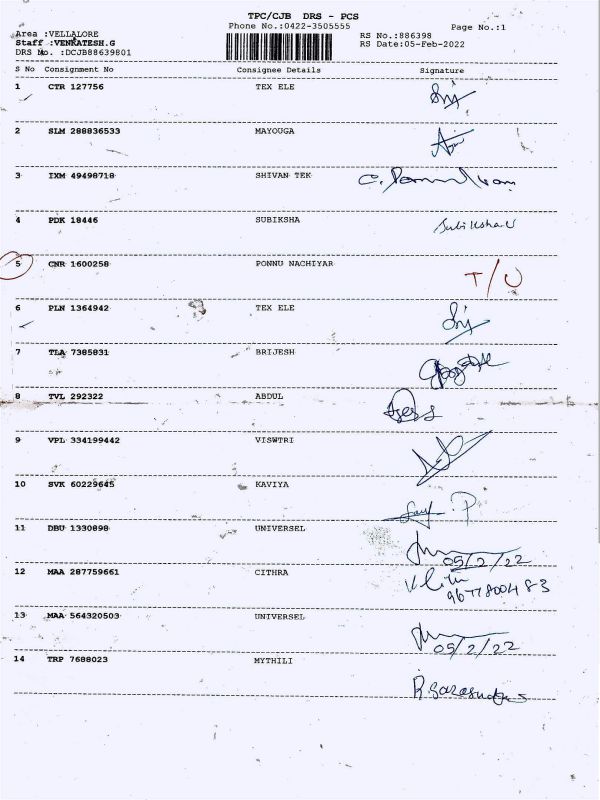 TPC/CJB DRS - PCS
Phone No.:0422-3505555
Page No.:1
Area :VELLALORE
Staff :VENKATESH.G
DRS No. :DCJB88639801
RS No.:886398
RS Date:05-Feb-2022
S No Consignment No Consignee Details Signature
1 CTR 127756 TEX ELE
2 SLM 288836533 MAYOUGA
3 IXM 49498718 SHIVAN TEK
4 PDK 18446 SUBIKSHA
5 CNR 1600258 PONNU NACHIYAR T/U
6 PLN 1364942 TEX ELE
7 TLA 7385831 BRIJESH
8 TVL 292322 ABDUL
9 VPL 334199442 VISWTRI
10 SVK 60229645 KAVIYA
11 DBU 1330898 UNIVERSEL
05/2/22
12 MAA 287759661 CITHRA
9677800483
13 MAA 564320503 UNIVERSEL
05/2/22
14 TRP 7688023 MYTHILI